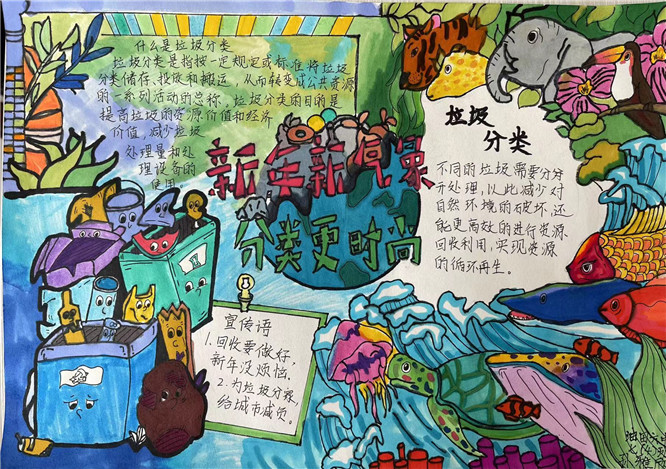 什么是垃圾分类
垃圾分类是指按一定规定或标准将垃圾
分类储存、投放和搬运，从而转变成公共资源
的一系列活动的总称，垃圾分类的目的是
提高垃圾的资源价值和经济
价值，减少垃圾
处理量和处
理设备的
使用
新年新气象
分类更时尚
垃圾
分类
不同的垃圾需要分分
开处理，以此减少对
自然环境的破坏，还
能更高效的进行资源
回收利用，实现资源
的循环再生。
宣传语
1.回收要做好，
新年没烦恼、
2.为垃圾分类，
给城市减负。